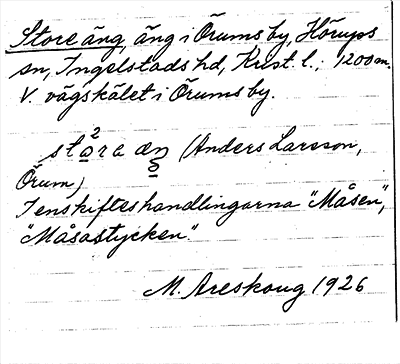 Store äng, äng i Örums by, Hörups
sn, Ingelstads hd, Krist. l.; 1200 m.
V. vägskälet i Örums by.
stora äŋ (Anders Larsson,
Örum)
I enskifteshandlingarna "Måsen",
"Måsastycken".
M. Areskoug 1926